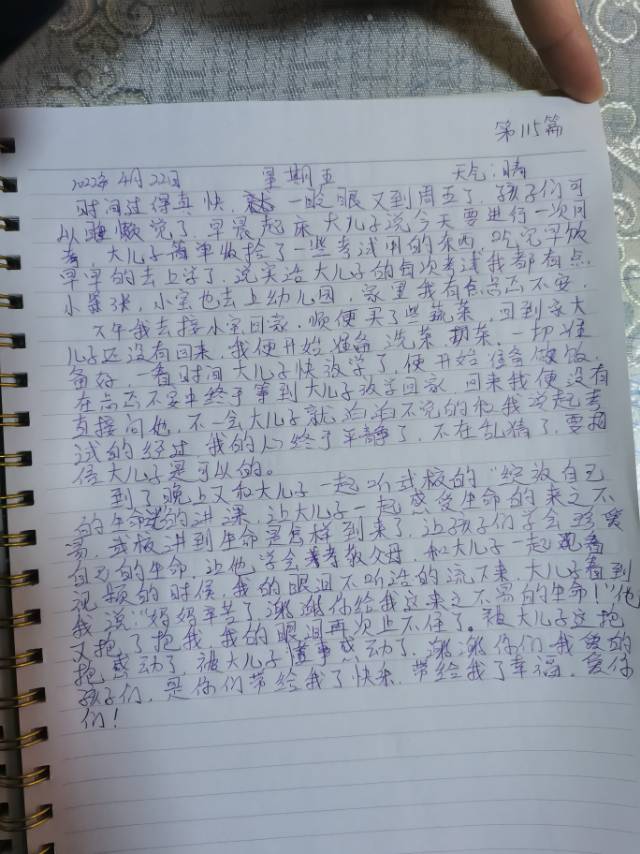 第115篇
2022年4月22日 星期五 天气:晴
时间过得真快,一眨眼又到周五了,孩子们可
以睡懒觉了,早晨起床大儿子说今天要进行一次月
考,大儿子简单收拾了一些考试用的东西,吃完早饭
早早的去上学了,说实话大儿子的每次考试我都有点
小紧张,小宝也去上幼儿园,家里我有点忐忑不安,
下午我去接小宝回家,顺便买了些蔬菜,回到家大
儿子还没有回来,我便开始准备洗菜,切菜,一切准
备好,一看时间大儿子快放学了,便开始准备做饭,
在忐忑不安中终于等到大儿子放学回家,回来我便没有
直接问他,不一会大儿子就滔滔不绝的和我说起考
试的经过,我的心终于平静了,不在乱猜了,要相
信大儿子是可以的。
到了晚上又和大儿子一起听武校的“绽放自己
的生命”的讲课,让大儿子一起感受生命的来之不
易,武校讲到生命是怎样到来了,让孩子们学会珍爱
自己的生命,让他学会孝敬父母,和大儿子一起观看
视频的时候,我的眼泪不听话的流下来,大儿子看到
我说:“妈妈辛苦了,谢谢你给我这来之不易的生命!”他
又抱了抱我,我的眼泪再次止不住了。被大儿子这抱
抱感动了,被大儿子懂事感动了,谢谢你们,我爱的
孩子们,是你们带给我了快乐,带给我了幸福,爱你
们!